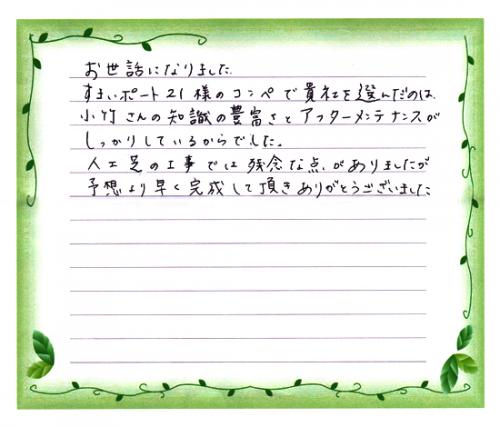 お世話になりました。
すまいポート21様のコンペで貴社を選んだのは、
小竹さんの知識の豊富さとアフターメンテナンスが
しっかりしているからでした。
人工芝の工事では残念な点がありましたが
予想より早く完成して頂きありがとうございました